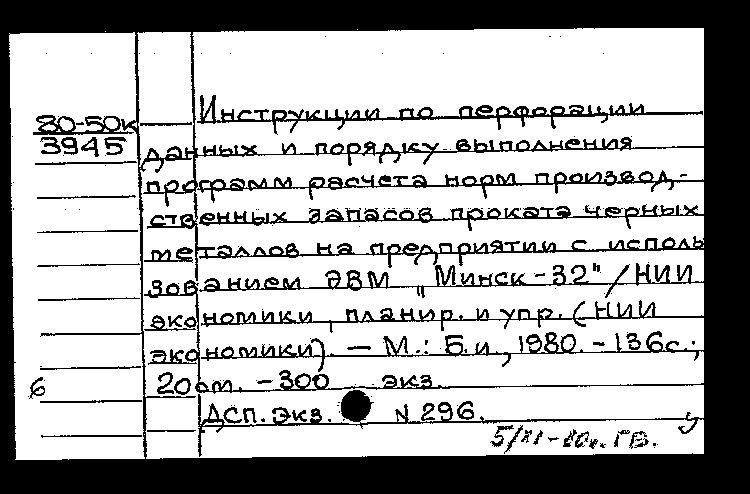 80-50к
3945
Инструкции по перфорации
данных и порядку выполнения
программ расчета норм производ-
ственных запасов проката черных
металлов на предприятии с исполь
зованием ЭВМ „Минск-32" / НИИ
экономики, планир. и упр. (НИИ
экономики). — М.: Б.и., 1980. - 136с.;
6 20см. - 300 экз.
ДСП. Экз. N 296.
у
5/XI-80г. ГВ.